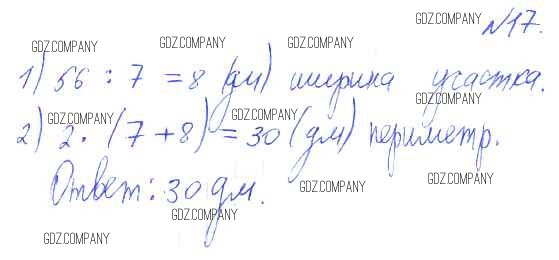 №17.
1) 56 : 7 = 8 (дм) ширина участка.
2) 2 · (7 + 8) = 30 (дм) периметр.
Ответ: 30 дм.
GDZ.COMPANY
GDZ.COMPANY
GDZ.COMPANY
GDZ.COMPANY
GDZ.COMPANY
GDZ.COMPANY
GDZ.COMPANY
GDZ.COMPANY
GDZ.COMPANY
GDZ.COMPANY
GDZ.COMPANY